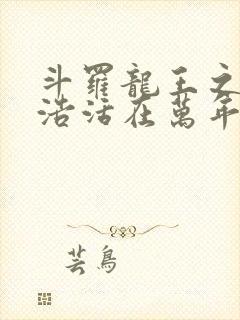 斗羅龍王之
浩活在萬年
芸鳥